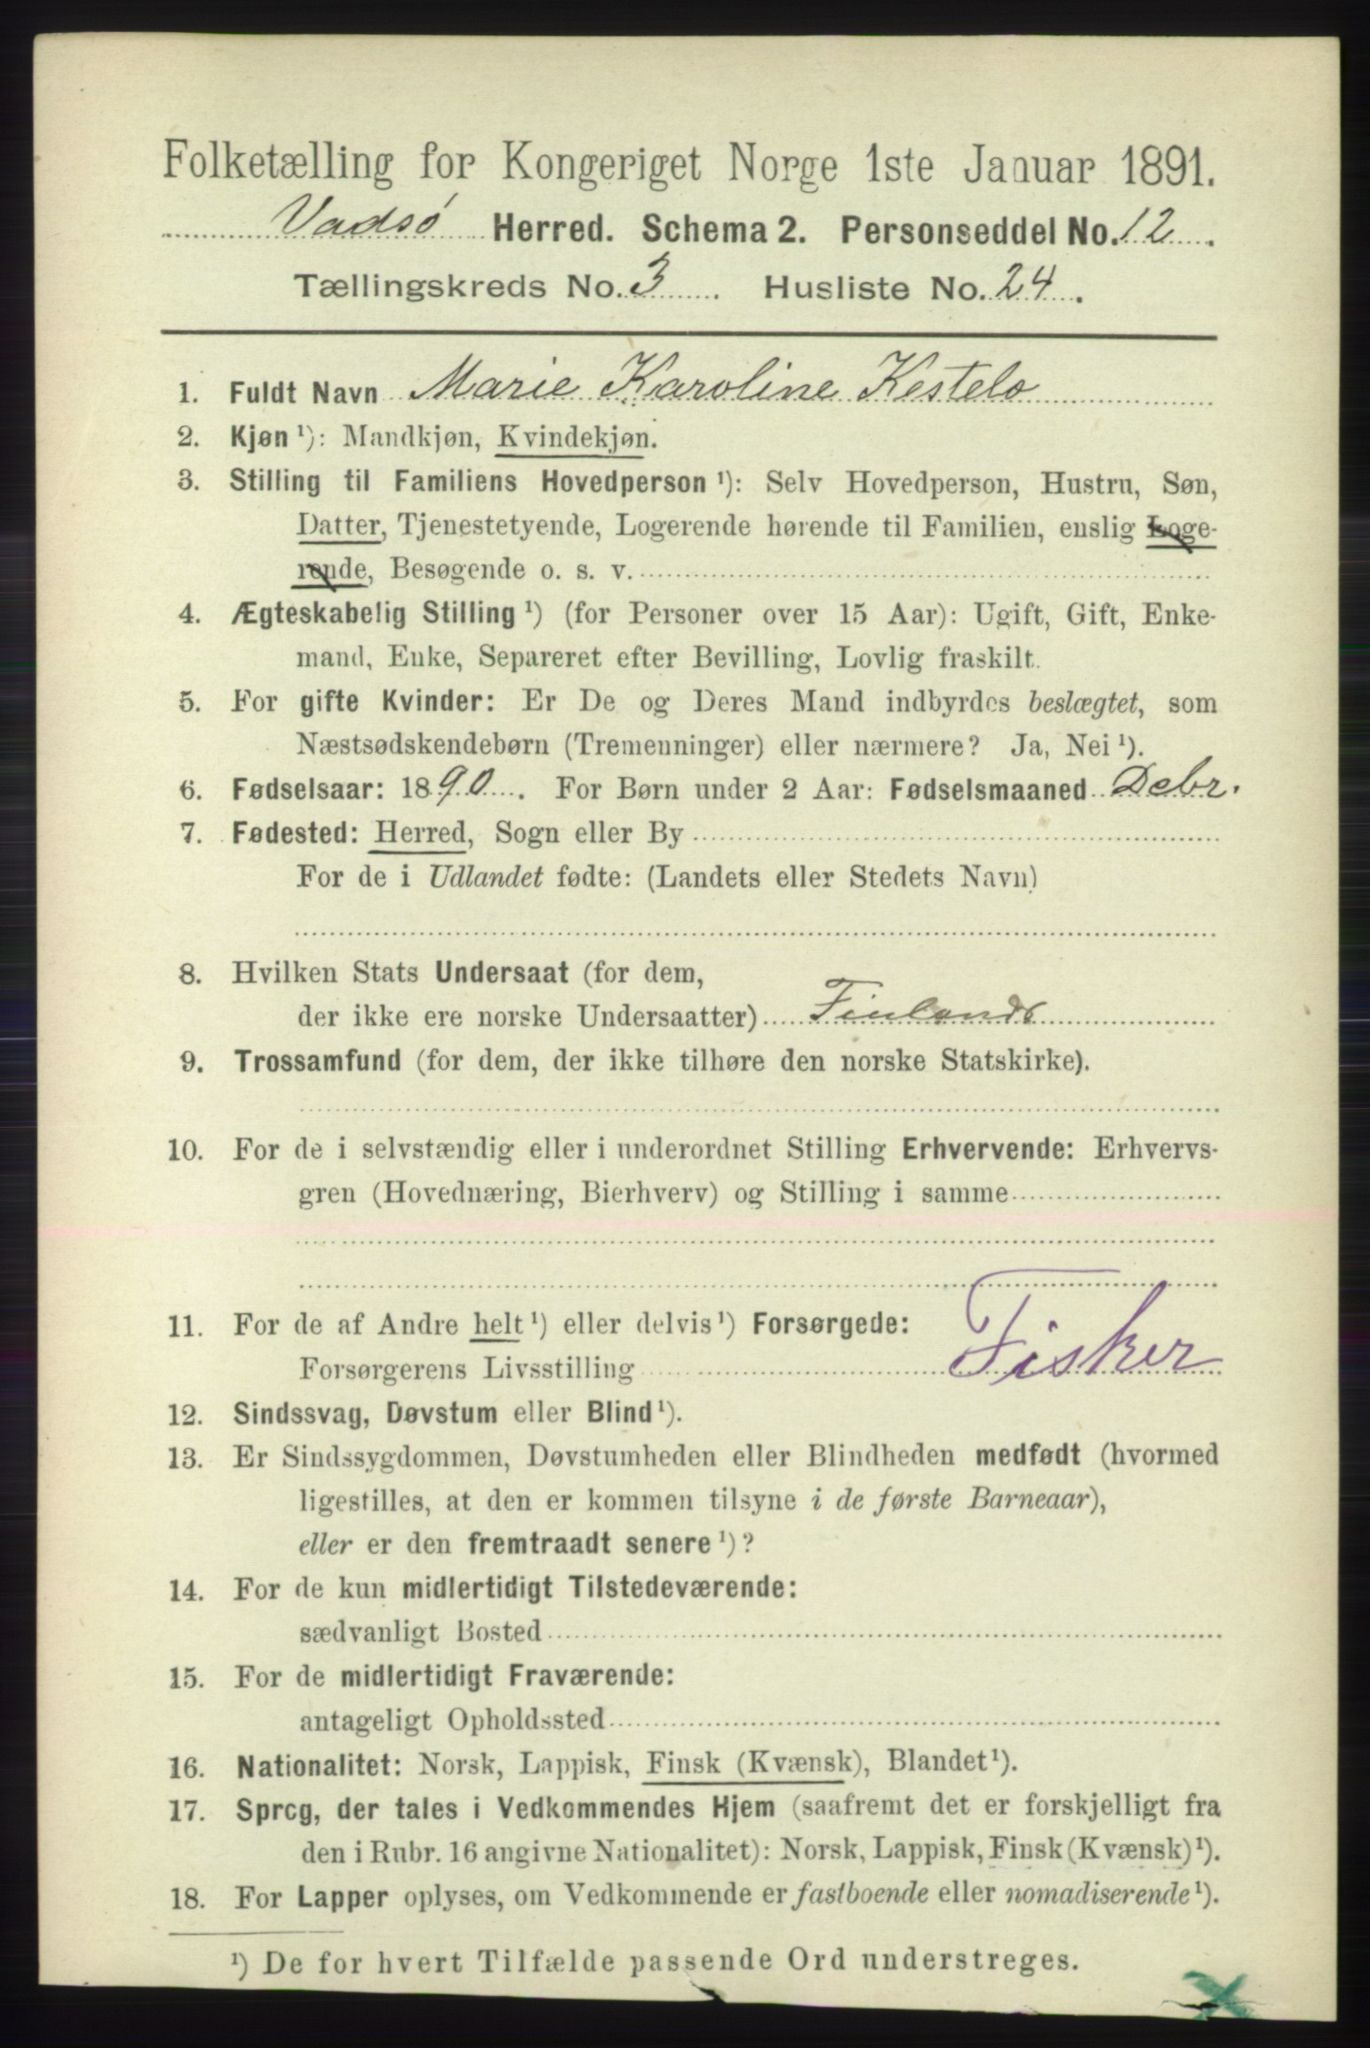 Folketælling for Kongeriget Norge 1ste Januar 1891.
Vadsø Herred. Schema 2. Personseddel No. 12.
Tællingskreds No. 3. Husliste No. 24.
1. Fuldt Navn Marie Karoline Kestelo
2. Kjøn ¹): Mandkjøn, Kvindekjøn.
3. Stilling til Familiens Hovedperson ¹): Selv Hovedperson, Hustru, Søn,
Datter, Tjenestetyende, Logerende hørende til Familien, enslig Loge-
rende, Besøgende o. s. v.
4. Ægteskabelig Stilling ¹) (for Personer over 15 Aar): Ugift, Gift, Enke-
mand, Enke, Separeret efter Bevilling, Lovlig fraskilt.
5. For gifte Kvinder: Er De og Deres Mand indbyrdes beslægtet, som
Næstsødskendebørn (Tremenninger) eller nærmere? Ja, Nei ¹).
6. Fødselsaar: 1890. For Børn under 2 Aar: Fødselsmaaned Debr.
7. Fødested: Herred, Sogn eller By
For de i Udlandet fødte: (Landets eller Stedets Navn)
8. Hvilken Stats Undersaat (for dem,
der ikke ere norske Undersaatter) Finlands
9. Trossamfund (for dem, der ikke tilhøre den norske Statskirke).
10. For de i selvstændig eller i underordnet Stilling Erhvervende: Erhvervs-
gren (Hovednæring, Bierhverv) og Stilling i samme
11. For de af Andre helt ¹) eller delvis ¹) Forsørgede:
Forsørgerens Livsstilling Fisker
12. Sindssvag, Døvstum eller Blind ¹).
13. Er Sindssygdommen, Døvstumheden eller Blindheden medfødt (hvormed
ligestilles, at den er kommen tilsyne i de første Barneaar),
eller er den fremtraadt senere ¹)?
14. For de kun midlertidigt Tilstedeværende:
sædvanligt Bosted
15. For de midlertidigt Fraværende:
antageligt Opholdssted
16. Nationalitet: Norsk, Lappisk, Finsk (Kvænsk), Blandet ¹).
17. Sprog, der tales i Vedkommendes Hjem (saafremt det er forskjelligt fra
den i Rubr. 16 angivne Nationalitet): Norsk, Lappisk, Finsk (Kvænsk) ¹).
18. For Lapper oplyses, om Vedkommende er fastboende eller nomadiserende ¹).
¹) De for hvert Tilfælde passende Ord understreges.